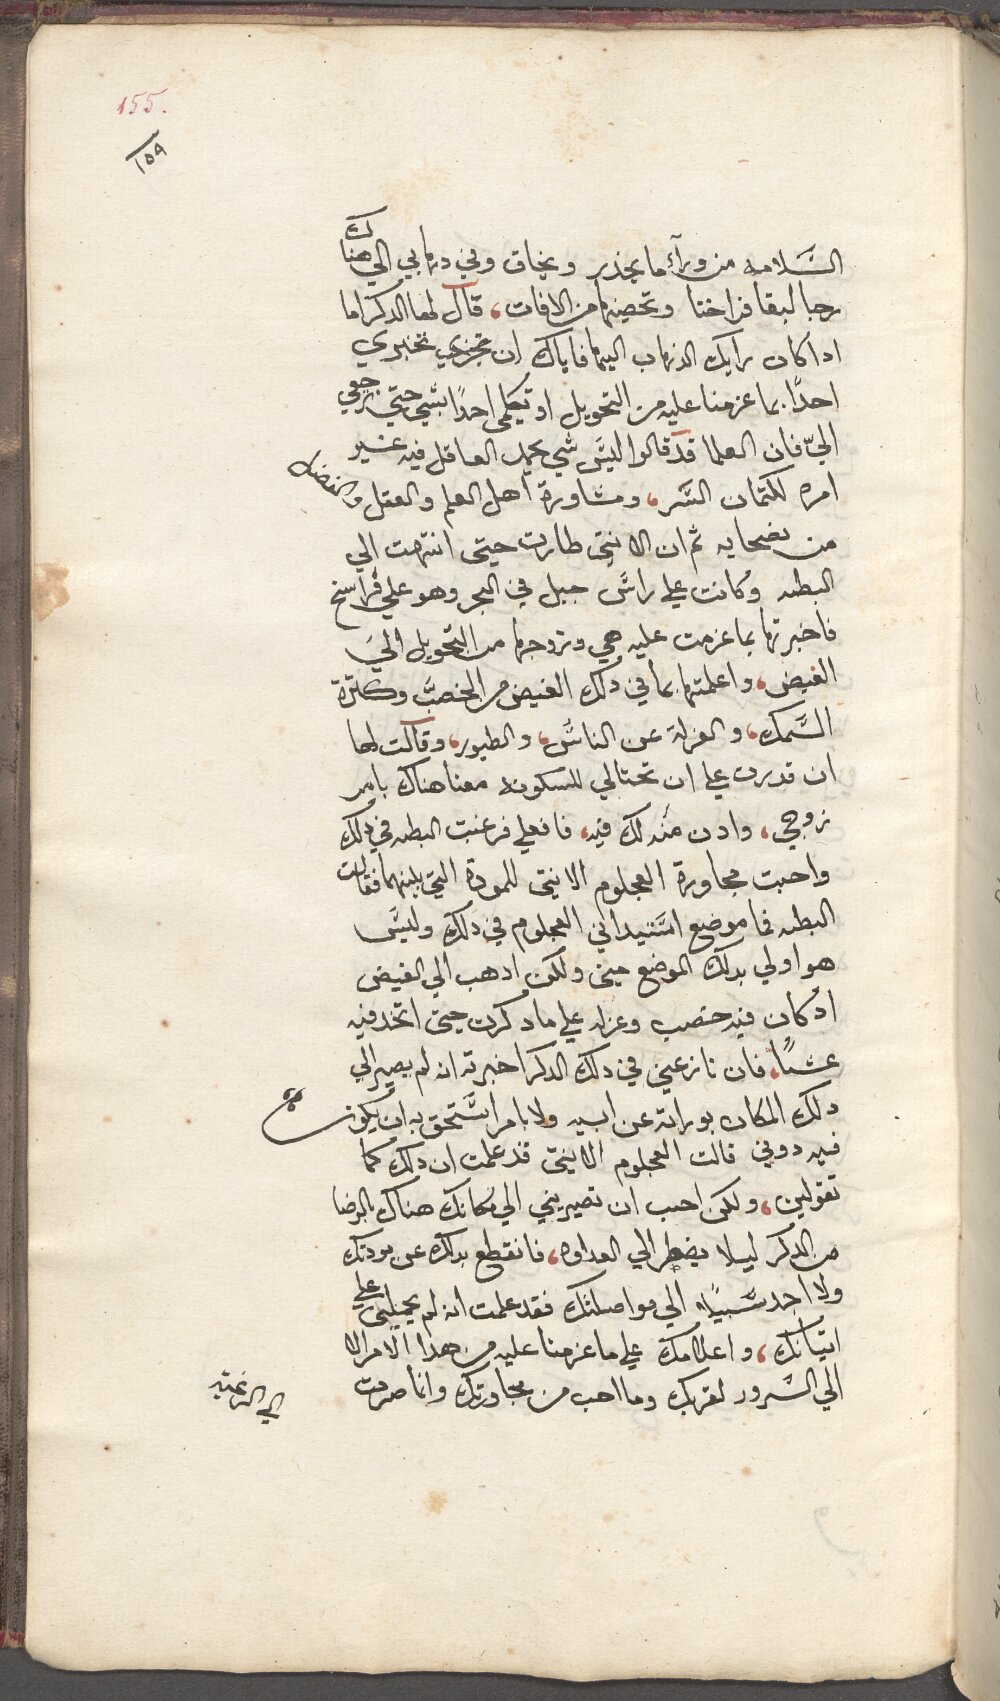 155.
١٥٩
السَّلامه من ورآء ما يحذر ويخاف وفي دهابي الي هناك
رجا لبقا فراخنا وتحصينها من الافات، قال لها الدكر اما
ادا كان رايك الدهاب اليها فاياك ان تخبري
احدًا بما عزمنا عليه من التحويل او تكلمي احدًا بشي حتي ترجعي
اليّ فان العلما قد قالوا ليسَ شي يحمد العاقل فيه غير
امره لكتمان السَّر، ومشاورة اهل العلم والعقل والفضل
من نصحايه ثم ان الانتى طارت حيتى انتهت الي
البطه وكانت علي راسَ جبل في البحر وهو علي فراسخ
فاخبرتها بما عزمت عليه هي وزوجها من التحويل اليَ
الغيض، واعلمتها بما في دلك الغيض من الخصبَّ وكترة
السَّمك، والعزلة عن الناسَّ، والطيور، وقالت لها
ان قدرت علي ان تحتالي للسكونه معنا هناك بامر
زوجي، وادن منه لك فيه، فافعلي فرغبت البطه في دلك
واحبت مجاورة العجلوم الانتى للمودة التي بينهما فقالت
البطه فما موضع استيداني العجلوم في دلك وليسَ
هو اولي بدلك الموضع منى ولكن ادهب الي الغيض
اد كان فيه خصب وعزله علي ما دكرت حيتى اتخد فيه
عشًا، فان نازعني في دلك الدكر اخبرته انه لم يصير الي
دلك المكان بوراته عن ابيه ولا بامر استَّحق به ان يكون
فيه دوني قالت العجلوم الانتى قد علمت ان دلك كما
تقولين، ولكن احب ان تصيريني الي مكانك هناك بالرضا
من الدكر ليلا يضطر الي العداوه، فانقطع بدلك عن مودتك
ولا اجد سَّبيلًا الي مواصلتك فقد علمت انه لم يحملني علي
اتيانك، واعلامك علي ما عزمنا عليه من هدا الامر الا
الي السَّرور لقربك وما احب من مجاورتك وانما صرت
الي الرغبه